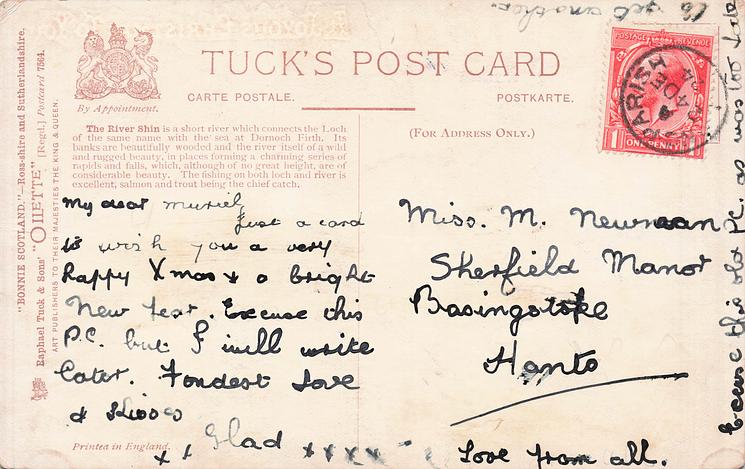 "BONNIE SCOTLAND."—Ross-shire and Sutherlandshire.
Raphael Tuck & Sons' "OILETTE" [Regd.] Postcard 7564.
ART PUBLISHERS TO THEIR MAJESTIES THE KING & QUEEN.
By Appointment.
TUCK'S POST CARD
CARTE POSTALE.
POSTKARTE.
The River Shin is a short river which connects the Loch
of the same name with the sea at Dornoch Firth. Its
banks are beautifully wooded and the river itself of a wild
and rugged beauty, in places forming a charming series of
rapids and falls, which, although of no great height, are of
considerable beauty. The fishing on both loch and river is
excellent, salmon and trout being the chief catch.
(For Address Only.)
POSTAGE REVENUE
1 ONE PENNY 1
PARISH
DE
My dear Muriel,
Just a card
to wish you a very
happy Xmas & a bright
New Year. Excuse this
P.C. but I will write
later. Fondest Love
& Kisses
x x Glad x x x x
Printed in England.
Miss. M. Newman
Sherfield Manor
Basingstoke
Hants
Love from all.
Excuse this old P.C. as was too late
to get another.